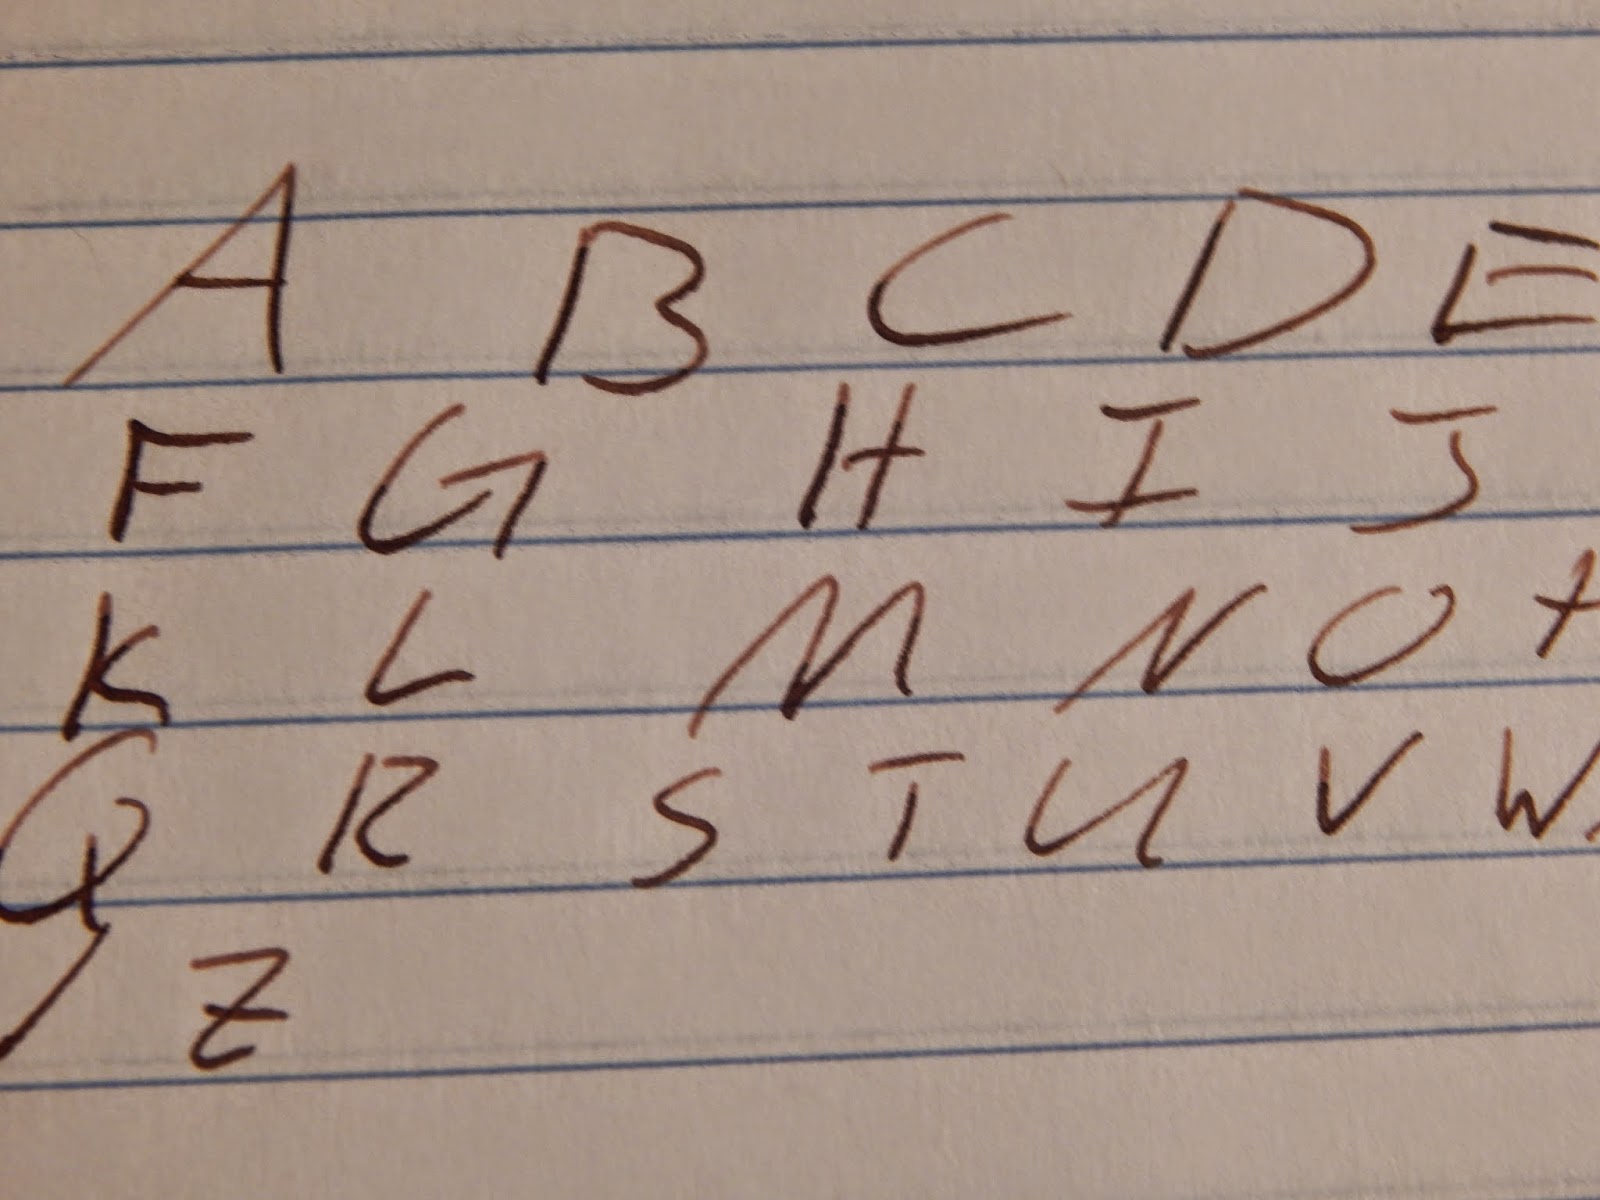 A B C D E
F G H I J
K L M N O
Q R S T U V W
Z